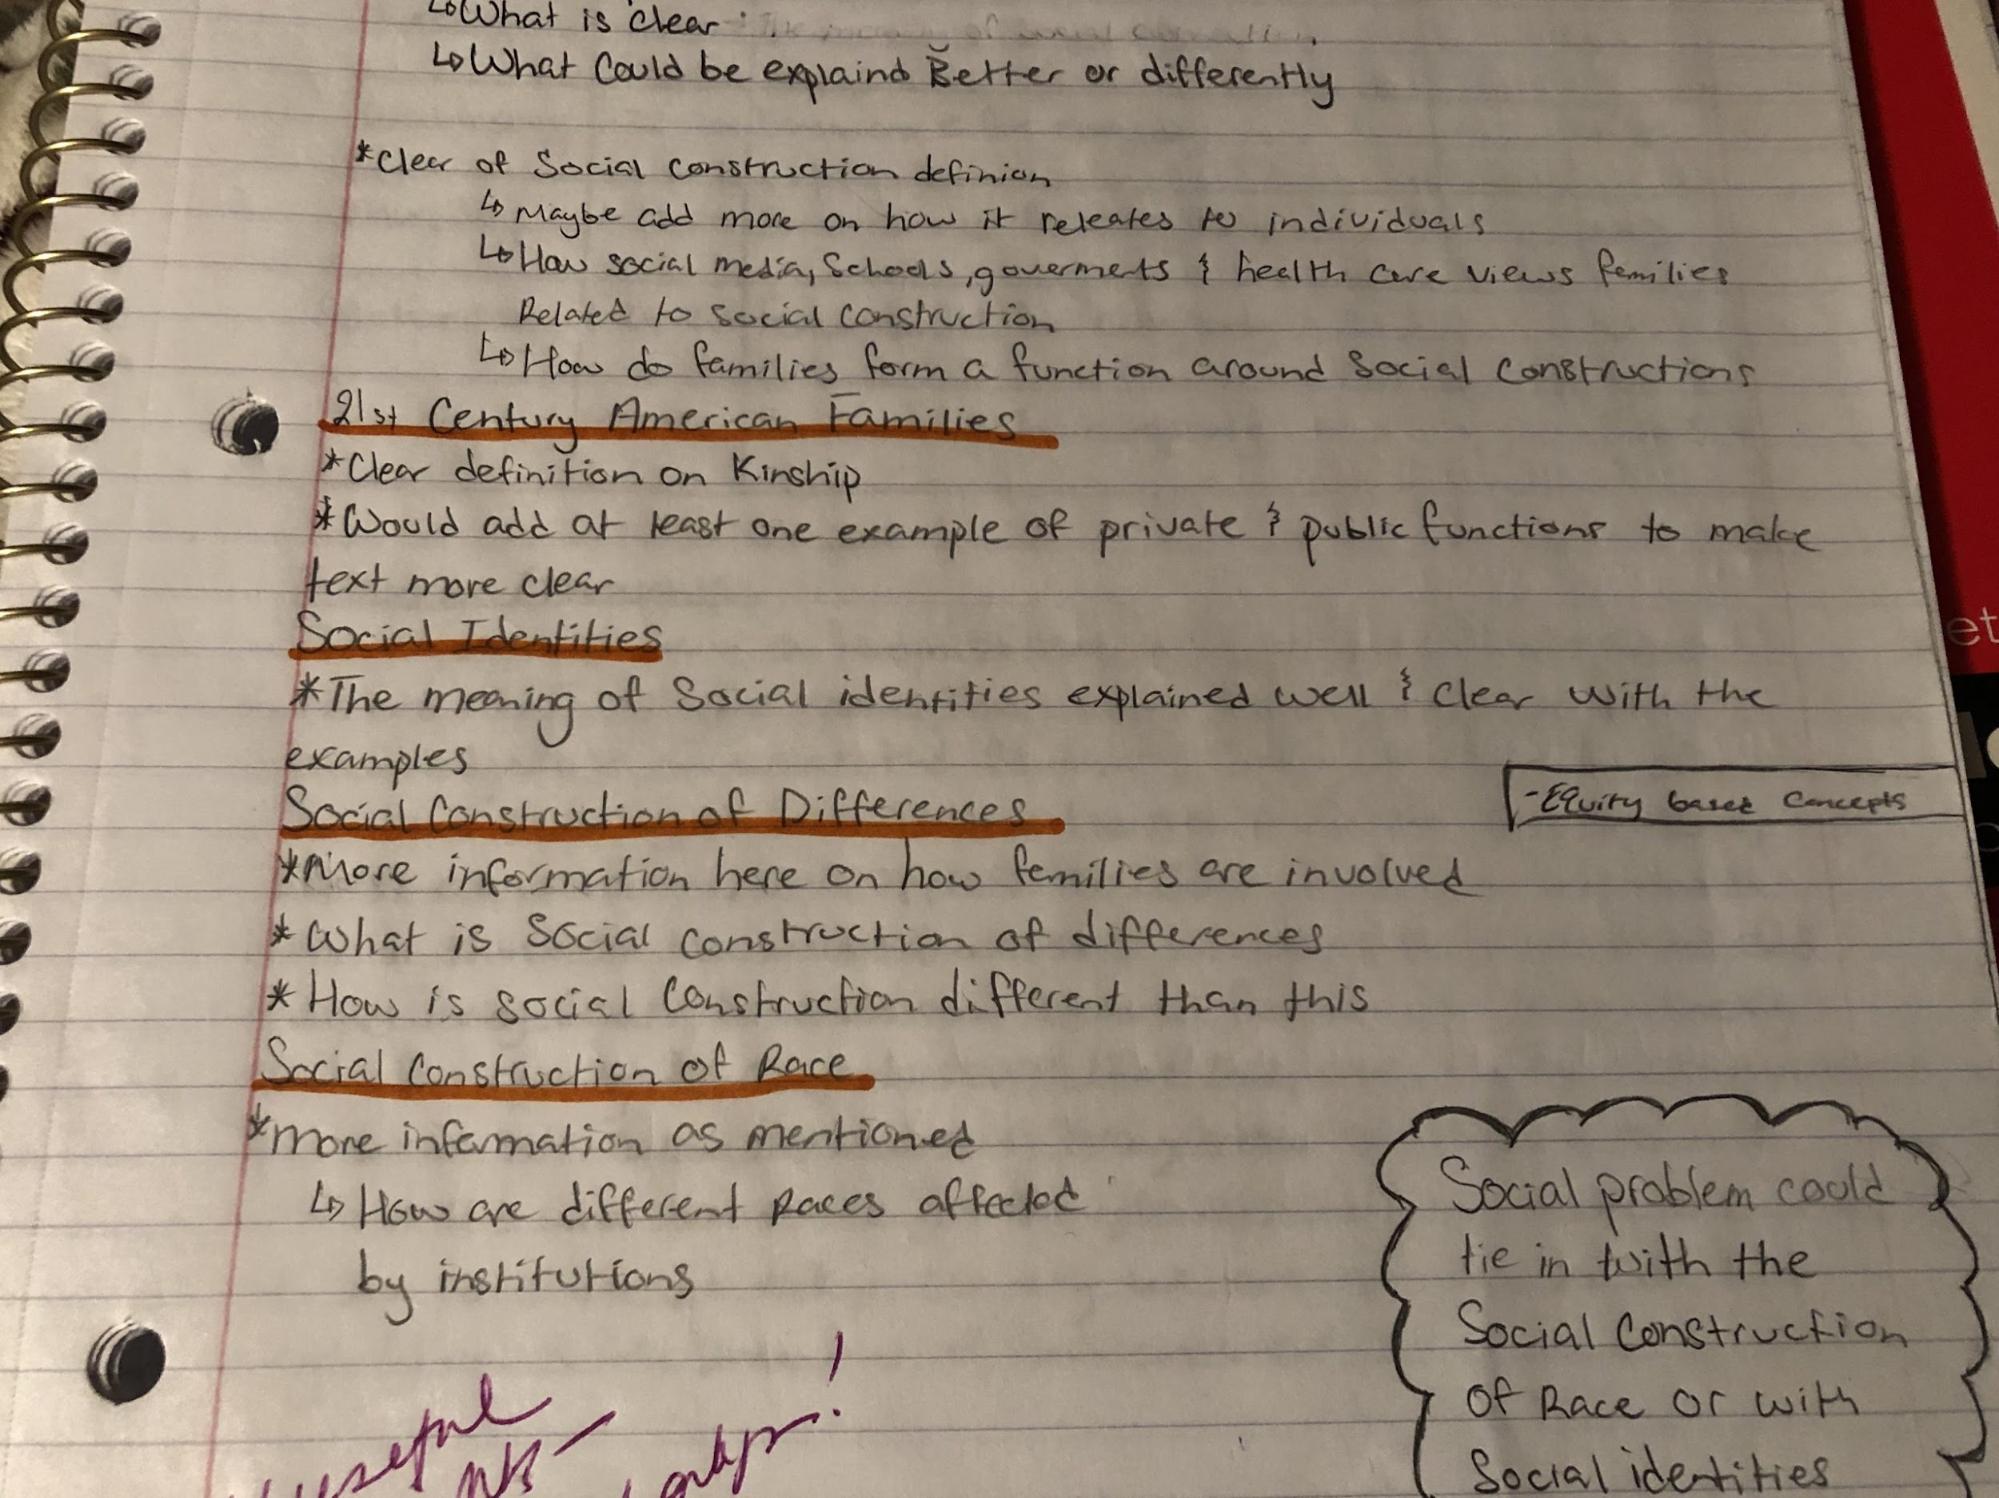 ↳What is clear
↳What could be explaind Better or differently
*Clear of Social construction definion
↳Maybe add more on how it releates to individuals
↳How social media, Schools, goverments & health care views families
Related to social construction
↳How do families form a function around social constructions
21st Century American Families
*Clear definition on Kinship
*Would add at least one example of private & public functions to make
text more clear
Social Identities
*The meaning of Social identities explained well & clear with the
examples
Social Construction of Differences
-Equity based concepts
*More information here on how families are involved
*What is social construction of differences
*How is social construction different than this
Social construction of Race
*more information as mentioned
↳How are different Races affected
by institutions
Social problem could
tie in with the
Social construction
of Race or with
Social identities
useful
et